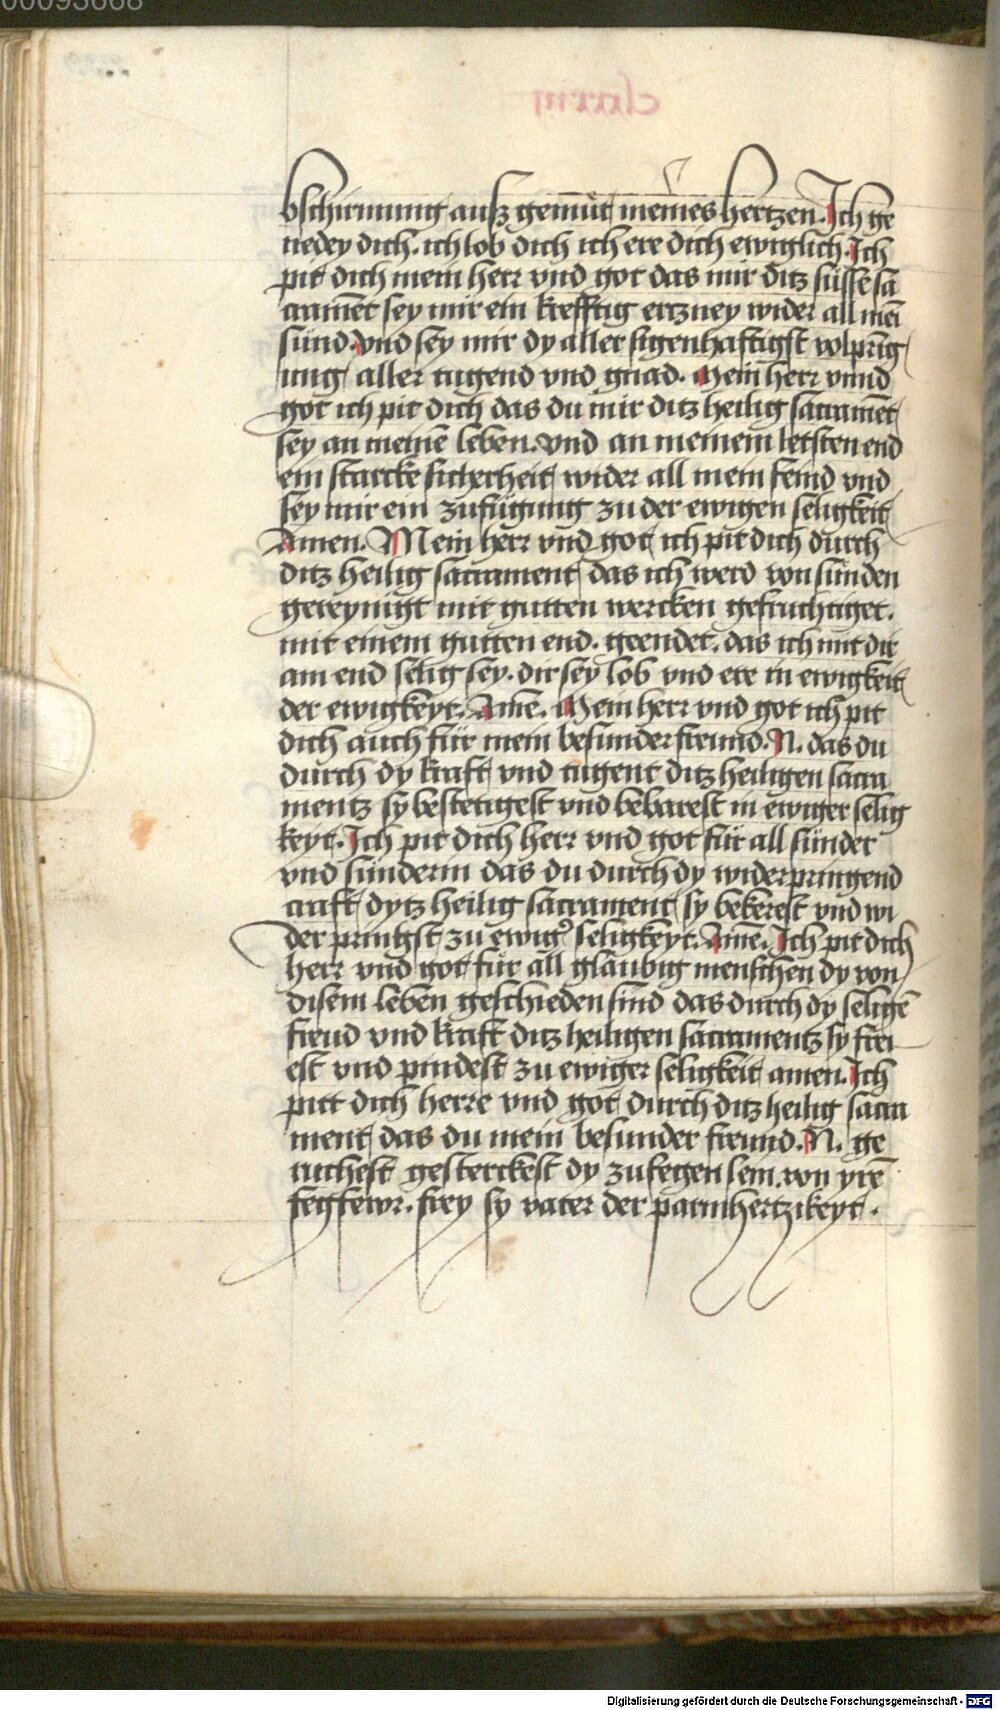 00093668
bschirmung auß gemüt meines hertzen. Ich ge
nedey dich. ich lob dich ich ere dich ewiglich. Ich
pit dich mein herr vnd got das mir ditz süsse sa
crament sey mir ein krefftig ertzney wider all mei
sünd. vnd sey mir dy aller sigenhaftigst volpring
ung aller tugend vnd gnad. Mein herr vnnd
got ich pit dich das du mir ditz heilig sacrament
sey an meinē leben. vnd an meinem letsten end
ein starcke sicherheit wider all mein feind vnd
sey mir ein zufügung zu der ewigen seligkeit
Amen. Mein herr vnd got ich pit dich durch
ditz heilig sacrament das ich werd von sünden
gereynigt mit gutten wercken gefruchtiget.
mit einem gutten end. geendet. das ich mit dir
am end selig sey. dir sey lob vnd ere in ewigkeit
der ewigkeyt. Amē. Mein herr vnd got ich pit
dich auch für mein besunder freund. N. das du
durch dy kraft vnd tugent ditz heiligen sacra
mentz sy bestetigest vnd bebarest in ewiger selig
keyt. Ich pit dich herr vnd got für all sünder
vnd sünderin das du durch dy widerpringend
craft dytz heilig sacrament sy bekerest vnd wi
der pringst zu ewigʼ seligkeyt. Amē. Ich pit dich
herr vnd got für all glaubig menschen dy von
disem leben geschieden sind das durch dy seligē
freud vnd kraft ditz heiligen sacramentz sy frei
est vnd pindest zu ewiger seligkeit amen. Ich
pitt dich herre vnd got durch ditz heilig sacra
ment das du mein besunder freund. N. ge
ruchest gesterckest dy zufegen sein. von yrē
fegfewr. frey sy vater der parmhertzikeyt.
Digitalisierung gefördert durch die Deutsche Forschungsgemeinschaft - DFG